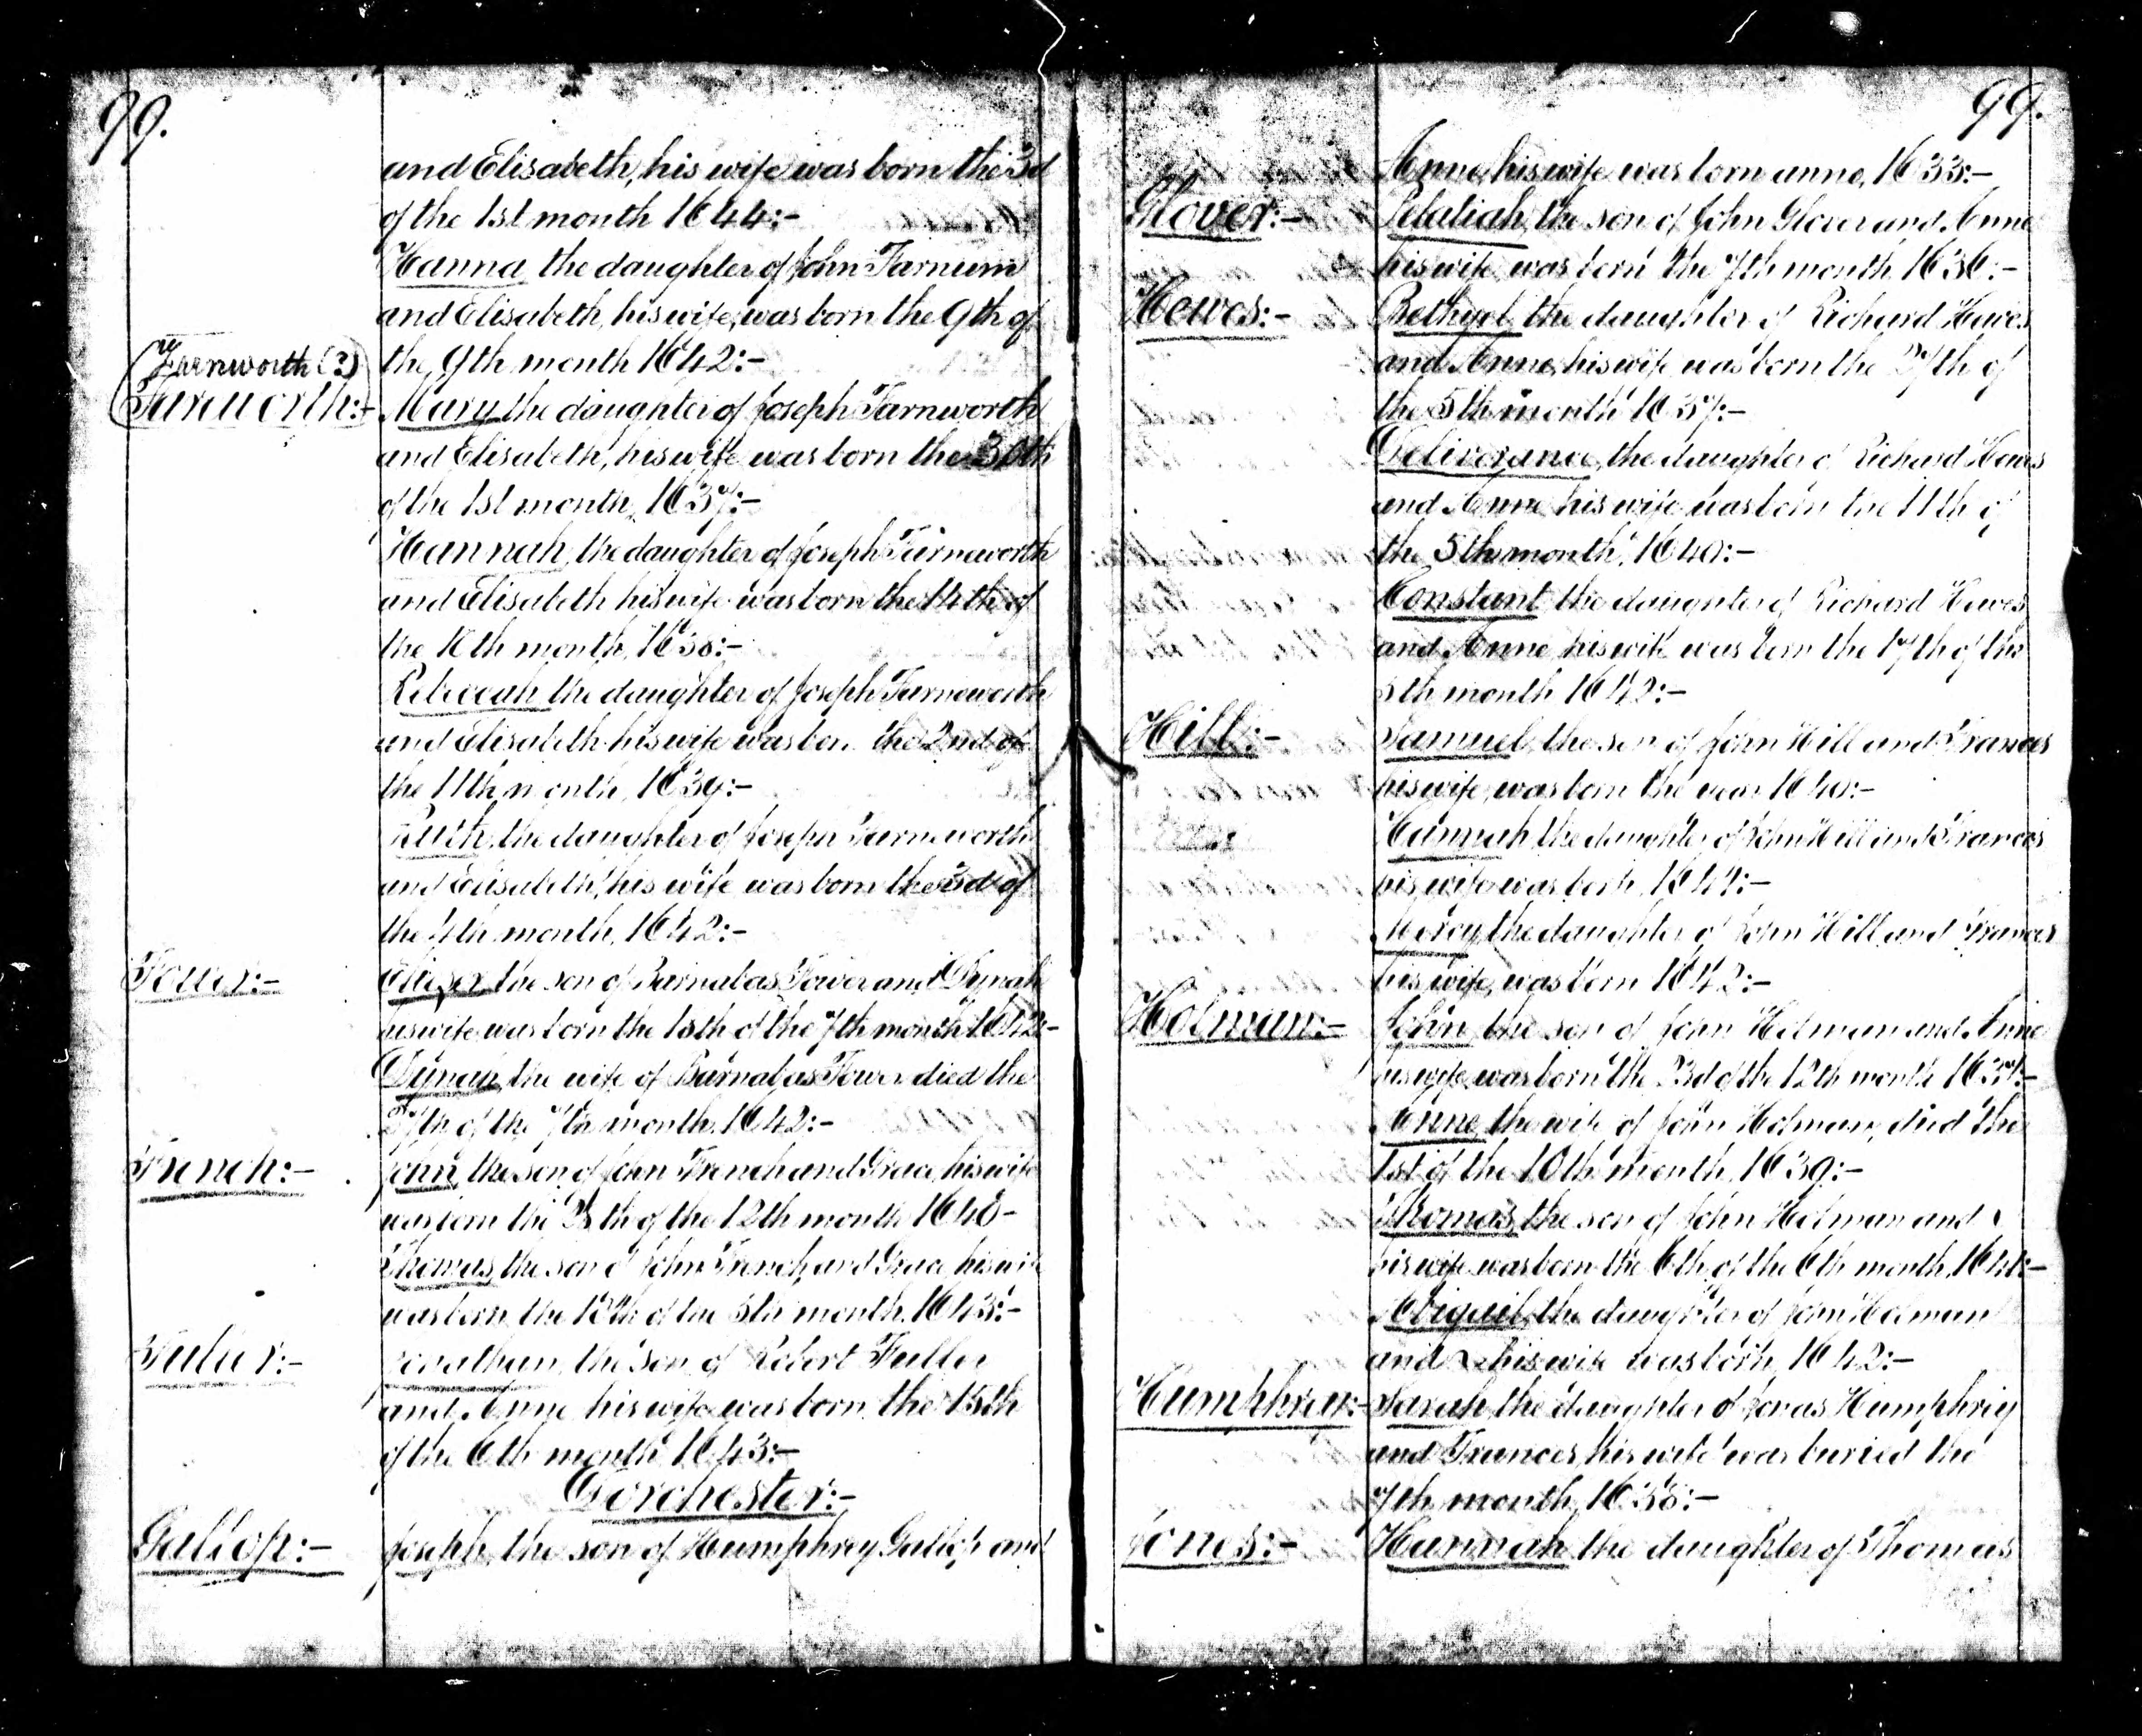 99.
and Elisabeth, his wife was born the 3d
of the 1st month 1644:-
Hanna the daughter of John Farnum
and Elisabeth, his wife, was born the 9th of
the 9th month 1642:-
Farnworth (?)
Farnworth:-
Mary the daughter of Joseph Farnworth
and Elisabeth, his wife was born the 30th
of the 1st month, 1637:-
Hannah, the daughter of Joseph Farneworth
and Elisabeth his wife was born the 14th of
the 10th month, 1638:-
Rebeccah the daughter of Joseph Farneworth
and Elisabeth his wife was born the 2nd of
the 11th month, 1639:-
Ruth, the daughter of Joseph Farneworth
and Elisabeth, his wife was born the 3d of
the 4th month, 1642:-
Fower:-
Eliezer the son of Barnabas Fower and Dynah
his wife was born the of the 7th month 1642:-
Dinah, the wife of Barnabas Fower died the
27th of the 7th month, 1642:-
French:-
John, the son of John French and Grace, his wife
was born the of the 12th month 1640-
Thomas, the son of John French, and Grace, his wife
was born the 10th of the 5th month, 1643:-
Fuller:-
Jonathan, the son of Robert Fuller
and Anne his wife was born the 15th
of the 6th month 1643:-
Dorchester:-
Gallop:-
Joseph, the son of Humphrey Gallop and
99.
Anne, his wife was born anno, 1633:-
Glover:-
Pelatiah, the son of John Glover and Anne
his wife, was born the 7th month, 1636:-
Hewes:-
Bethyel the daughter of Richard Hawes
and Anne, his wife was born the 27th of
the 5th month 1637:-
Deliverance, the daughter of Richard Hawes
and Anne his wife was born the 11th of
the 5th month, 1640:-
Constant the daughter of Richard Hawes
and Anne his wife was born the 17th of the
5th month 1642:-
Hill:-
Samuel, the son of John Hill and Frances
his wife, was born the year 1640:-
Hannah the daughter of John Hill and Frances
his wife was born, 1641:-
Mercy, the daughter of John Hill and Frances
his wife, was born 1642:-
Holman:-
John, the son of John Holman and Anne
his wife, was born the 23d of the 12th month 1637:-
Anne, the wife of John Holman, died the
1st of the 10th month, 1639:-
Thomas, the son of John Holman and
his wife was born the 6th of the 6th month, 1641:-
Abigail, the daughter of John Holman
and his wife was born, 1642:-
Humphrey:-
Sarah, the daughter of Jonas Humphrey
and Frances, his wife was buried the
7th month, 1638:-
Jones:-
Hannah the daughter of Thomas